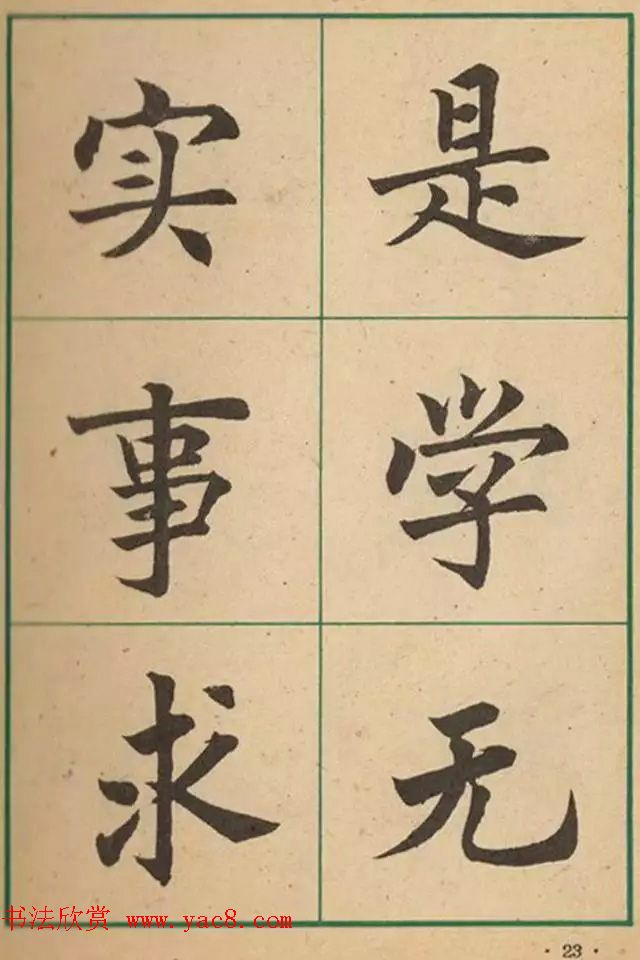 实事求
是学无
书法欣赏 www.yac8.com
·23·